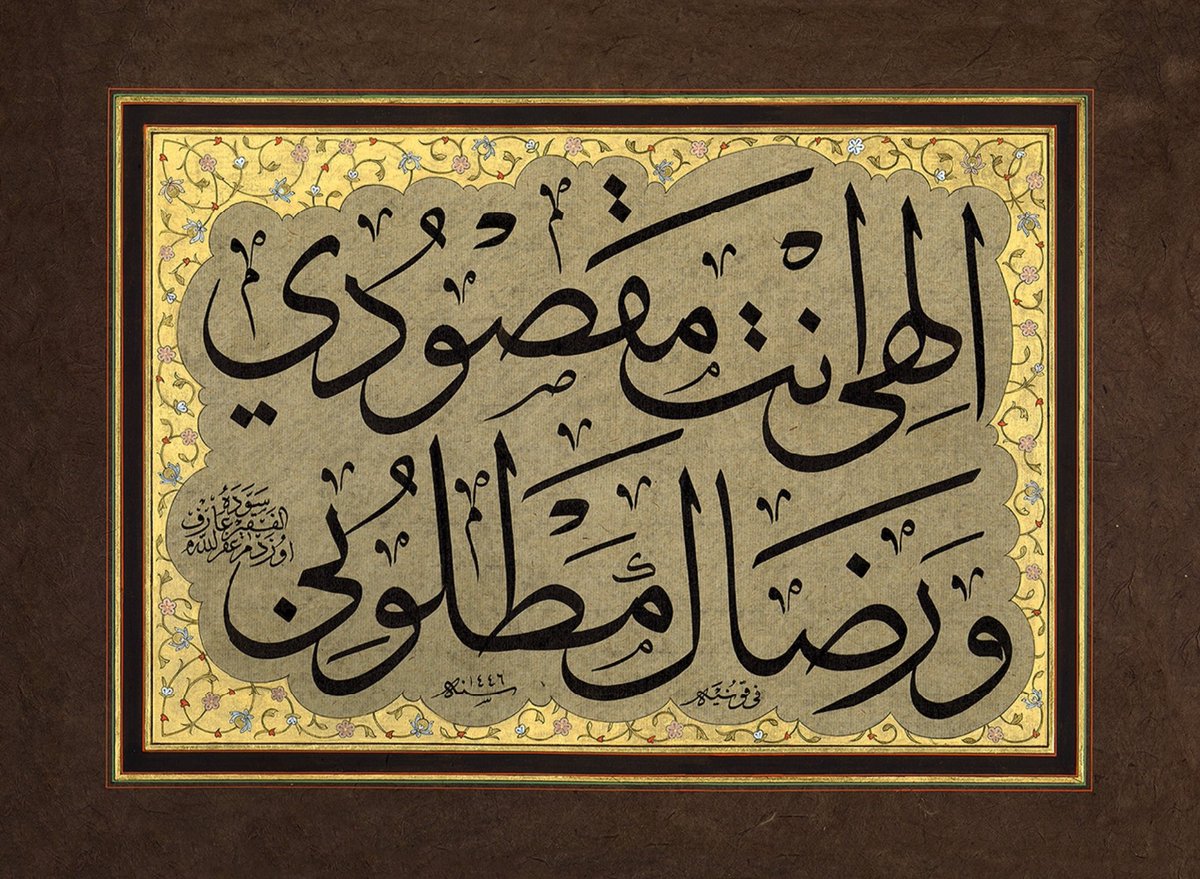 الهی انت مقصودي
ورضاك مطلوبي
سوّده
الفقير عارف
اوزدمر غفرالله
فى قونيه
سنه ١٤٤٦